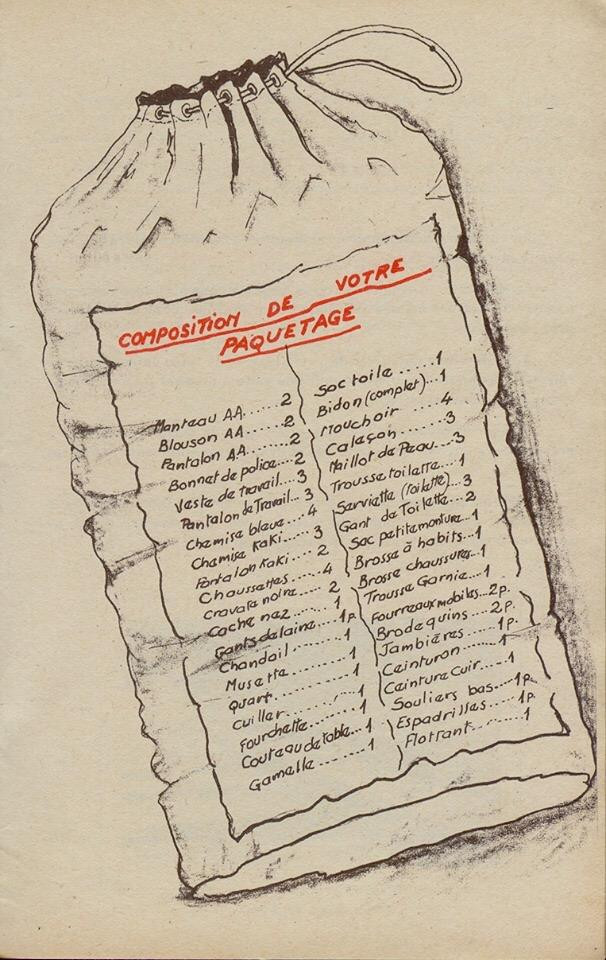 COMPOSITION DE VOTRE
PAQUETAGE
Manteau AA......2
Blouson AA......2
Pantalon AA.....2
Bonnet de police....2
Veste de travail....3
Pantalon de Travail...3
Chemise bleue....4
Chemise Kaki....3
Pantalon Kaki...2
Chaussettes....4
Cravate noire....2
Cache nez.....1
Gants de laine....1p.
Chandail.......1
Musette........1
Quart..........1
Cuiller........1
Fourchette.....1
Couteau de table...1
Gamelle........1
Sac toile.....1
Bidon (complet)...1
Mouchoir.....4
Caleçon......3
Maillot de Peau...3
Trousse toilette...1
Serviette (Toilette)..3
Gant de Toilette..2
Sac petite monture...1
Brosse à habits..1
Brosse chaussures..1
Trousse Garnie..1
Fourreaux mobiles..2p.
Brodequins...2p.
Jambières....1p.
Ceinturon....1
Ceinture Cuir....1
Souliers bas...1p.
Espadrilles....1p.
Flottant.......1